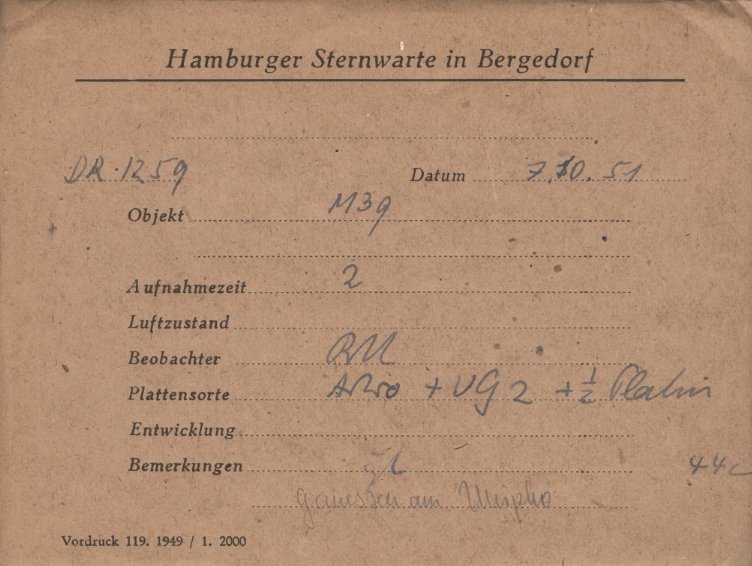 Hamburger Sternwarte in Bergedorf
DR 1259 Datum 7.10.51
Objekt M39
Aufnahmezeit 2
Luftzustand
Beobachter
Plattensorte Astro + UG 2 + 1/2 Platin
Entwicklung
Bemerkungen 44
gemessen am
Vordruck 119. 1949 / 1. 2000